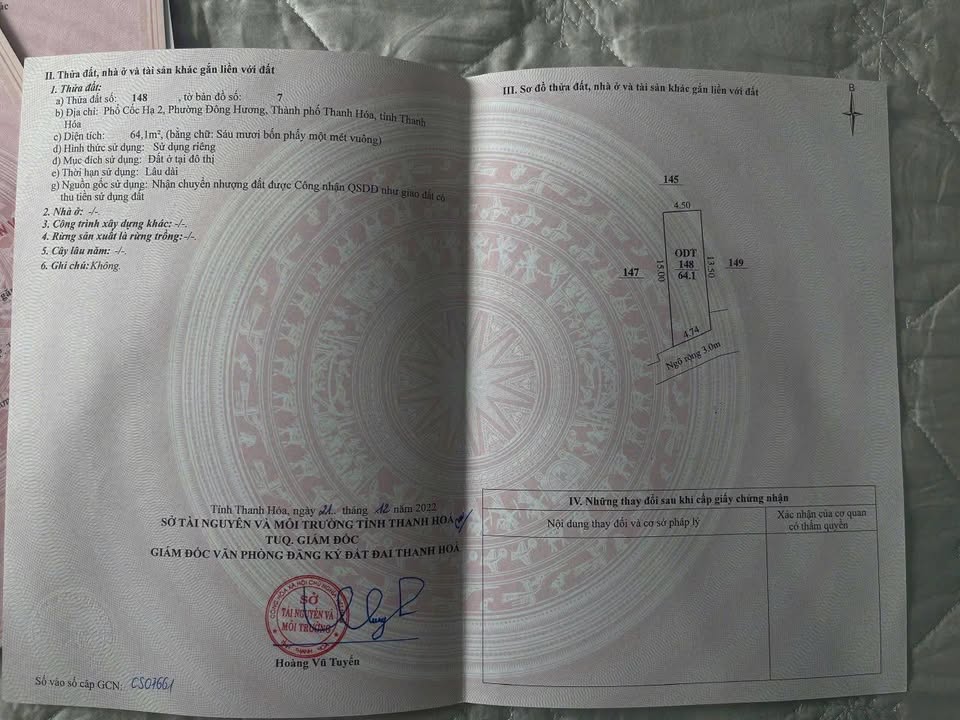 II. Thửa đất, nhà ở và tài sản khác gắn liền với đất
1. Thửa đất:
a) Thửa đất số: 148 , tờ bản đồ số: 7
b) Địa chỉ: Phố Cốc Hạ 2, Phường Đông Hương, Thành phố Thanh Hóa, tỉnh Thanh
Hóa
c) Diện tích: 64,1m², (bằng chữ: Sáu mươi bốn phẩy một mét vuông)
d) Hình thức sử dụng: Sử dụng riêng
đ) Mục đích sử dụng: Đất ở tại đô thị
e) Thời hạn sử dụng: Lâu dài
g) Nguồn gốc sử dụng: Nhận chuyển nhượng đất được Công nhận QSDĐ như giao đất có
thu tiền sử dụng đất
2. Nhà ở: -/-
3. Công trình xây dựng khác: -/-.
4. Rừng sản xuất là rừng trồng: -/-.
5. Cây lâu năm: -/-.
6. Ghi chú: Không.
Tỉnh Thanh Hóa, ngày 21 tháng 12 năm 2022
SỞ TÀI NGUYÊN VÀ MÔI TRƯỜNG TỈNH THANH HOÁ
TUQ. GIÁM ĐỐC
GIÁM ĐỐC VĂN PHÒNG ĐĂNG KÝ ĐẤT ĐAI THANH HOÁ
SỞ
TÀI NGUYÊN VÀ
MÔI TRƯỜNG
Hoàng Vũ Tuyển
Số vào sổ cấp GCN: CS07661
III. Sơ đồ thửa đất, nhà ở và tài sản khác gắn liền với đất
B
145
4.50
147
15.00
ODT
148
64.1
13.50
149
4.74
Ngõ rộng 3.0m
IV. Những thay đổi sau khi cấp giấy chứng nhận
Nội dung thay đổi và cơ sở pháp lý
Xác nhận của cơ quan
có thẩm quyền